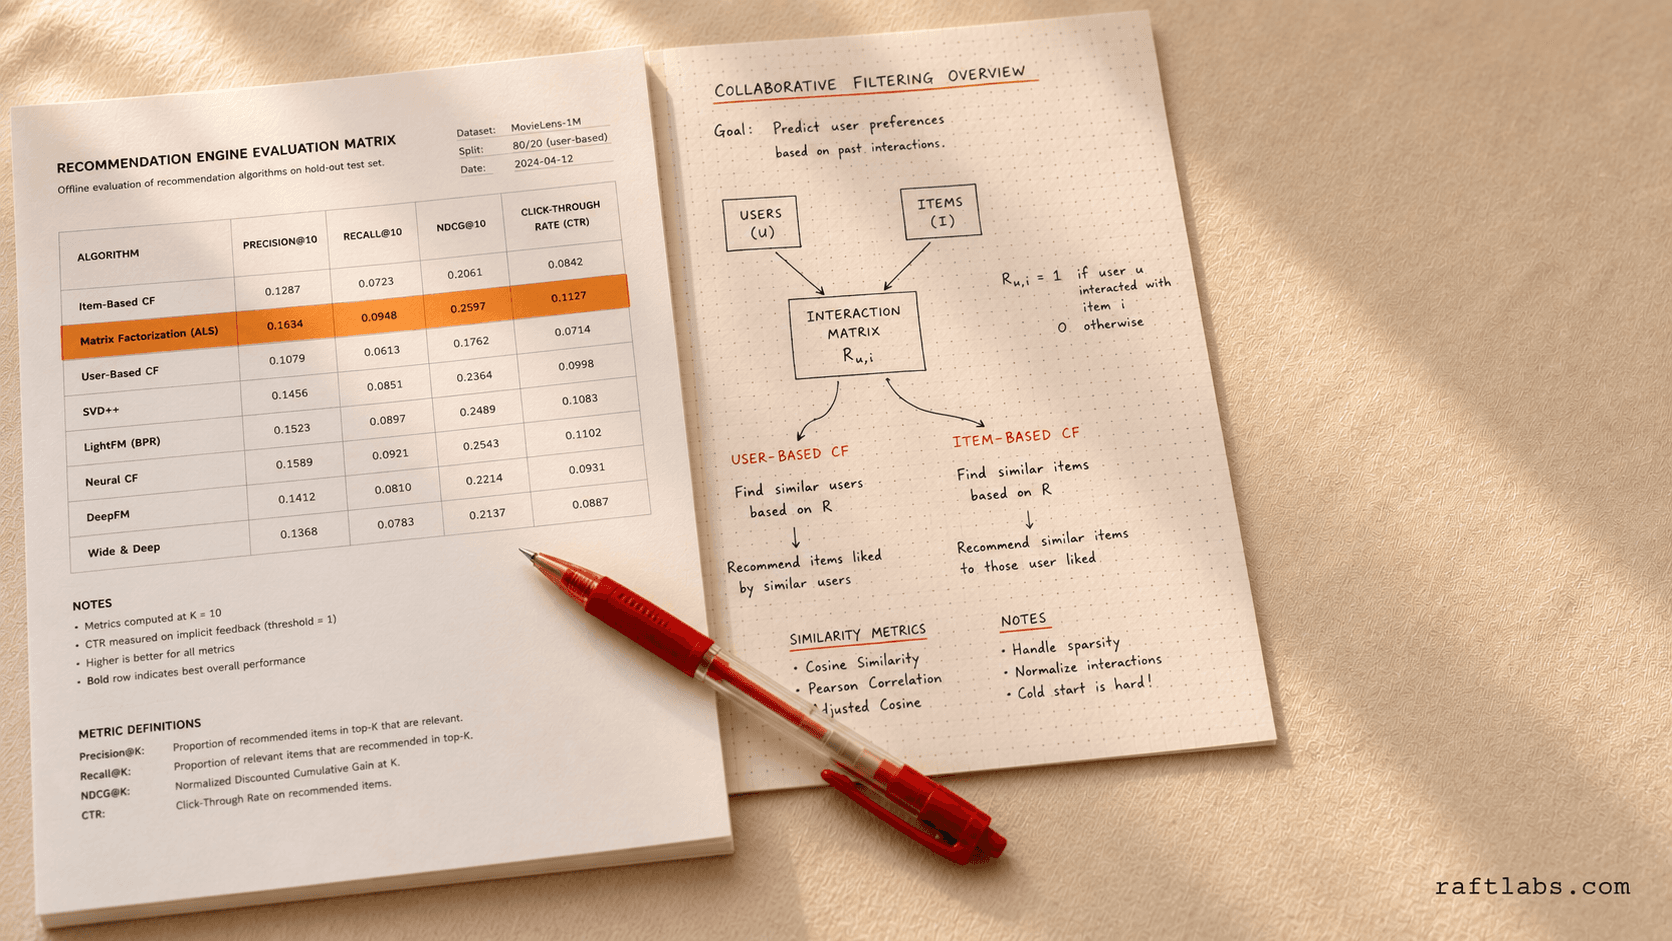 RECOMMENDATION ENGINE EVALUATION MATRIX
Offline evaluation of recommendation algorithms on hold-out test set.
Dataset: MovieLens-1M
Split: 80/20 (user-based)
Date: 2024-04-12
ALGORITHM PRECISION@10 RECALL@10 NDCG@10 CLICK-THROUGH RATE (CTR)
Item-Based CF 0.1287 0.0723 0.2061 0.0842
Matrix Factorization (ALS) 0.1634 0.0948 0.2597 0.1127
User-Based CF 0.1079 0.0613 0.1762 0.0714
SVD++ 0.1456 0.0851 0.2364 0.0998
LightFM (BPR) 0.1523 0.0897 0.2489 0.1083
Neural CF 0.1589 0.0921 0.2543 0.1102
DeepFM 0.1412 0.0810 0.2214 0.0931
Wide & Deep 0.1368 0.0783 0.2137 0.0887
NOTES
• Metrics computed at K = 10
• CTR measured on implicit feedback (threshold = 1)
• Higher is better for all metrics
• Bold row indicates best overall performance
METRIC DEFINITIONS
Precision@K: Proportion of recommended items in top-K that are relevant.
Recall@K: Proportion of relevant items that are recommended in top-K.
NDCG@K: Normalized Discounted Cumulative Gain at K.
CTR: Click-Through Rate on recommended items.
COLLABORATIVE FILTERING OVERVIEW
Goal: Predict user preferences
based on past interactions.
USERS
(U)
ITEMS
(I)
INTERACTION
MATRIX
Ru,i
Ru,i = 1 if user u
interacted with
item i
0 otherwise
USER-BASED CF
Find similar users
based on R
↓
Recommend items liked
by similar users
ITEM-BASED CF
Find similar items
based on R
↓
Recommend similar items
to those user liked
SIMILARITY METRICS
• Cosine Similarity
• Pearson Correlation
Adjusted Cosine
NOTES
• Handle sparsity
• Normalize interactions
• Cold start is hard!
raftlabs.com